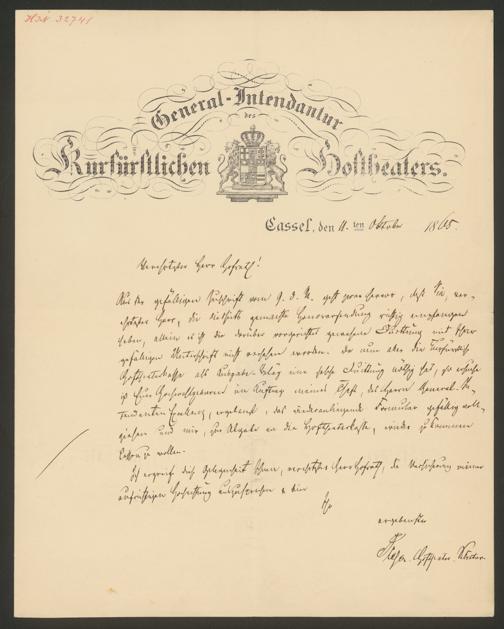 H.N 32741
General-Intendantur
des
Kurfürstlichen Hoftheaters.
Cassel, den 11. ten Oktober 1865.
Verehrtester Herr Hofrath!
Aus der gefälligen Zuschrift vom 9. d. M. geht zwar hervor, daß Sie, ver-
ehrtester Herr, die diesseits gemachte Honorarsendung richtig empfangen
haben, allein es ist die darüber vorgerichtet gewesene Quittung mit Ihrer
gefälligen Unterschrift nicht versehen worden. Da nun aber die Kurfürstliche
Hoftheaterkasse als Ausgabe-Beleg eine solche Quittung nöthig hat, so ersuche
ich Euer Hochwohlgeboren im Auftrag meines Chefs, des Herrn General-In-
tendanten ergebenst, das wiederanliegende Formular gefälligst voll-
ziehen und mir, zur Abgabe an die Hoftheaterkasse, wieder zukommen
lassen zu wollen.
Ich ergreife diese Gelegenheit, verehrtester Herr Hofrath, die Versicherung meiner
aufrichtigen Hochachtung auszusprechen
Ihr
ergebenster